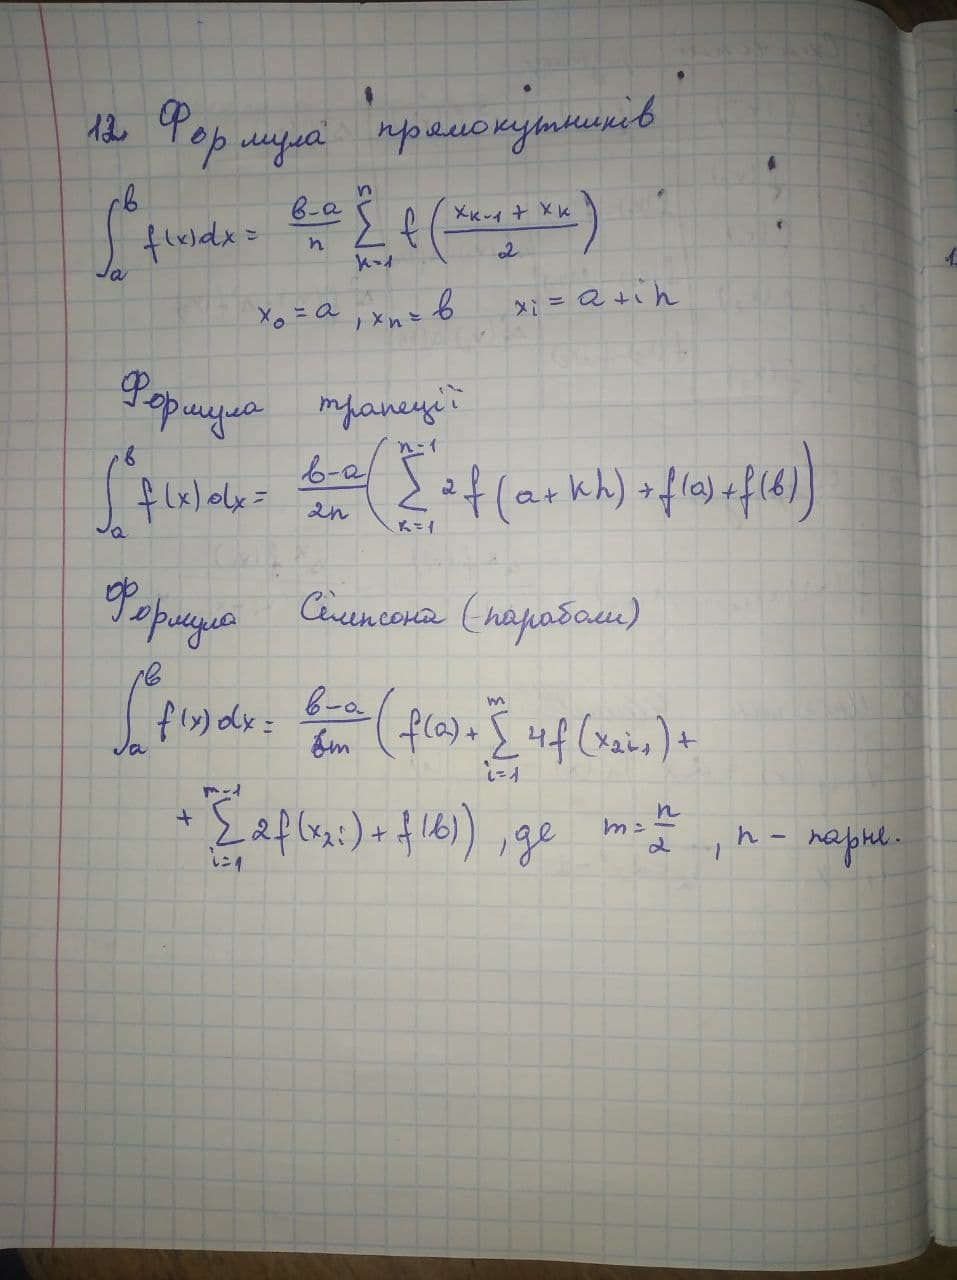 12. Формула прямокутників
∫_a^b f(x)dx = (b-a)/n ∑_{k=1}^{n} f((x_{k-1} + x_k)/2)
x_0 = a, x_n = b x_i = a + i h
Формула трапеції
∫_a^b f(x)dx = (b-a)/2n (∑_{k=1}^{n-1} 2f(a + kh) + f(a) + f(b))
Формула Сімпсона (параболи)
∫_a^b f(x)dx = (b-a)/6m (f(a) + ∑_{i=1}^{m} 4f(x_{2i-1}) +
+ ∑_{i=1}^{m-1} 2f(x_{2i}) + f(b)), де m = n/2, n - парне.